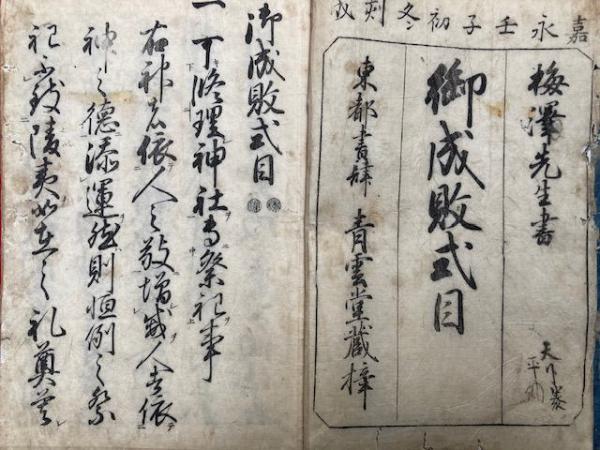 嘉永壬子初冬刻成
梅澤先生書
御成敗式目
東都書肆 青雲堂藏梓
御成敗式目
一 可修理神社專祭祀事
右神者依人之敬增威人者依
神之德添運然則恒例之祭
祀不致陵夷如在之礼奠莫